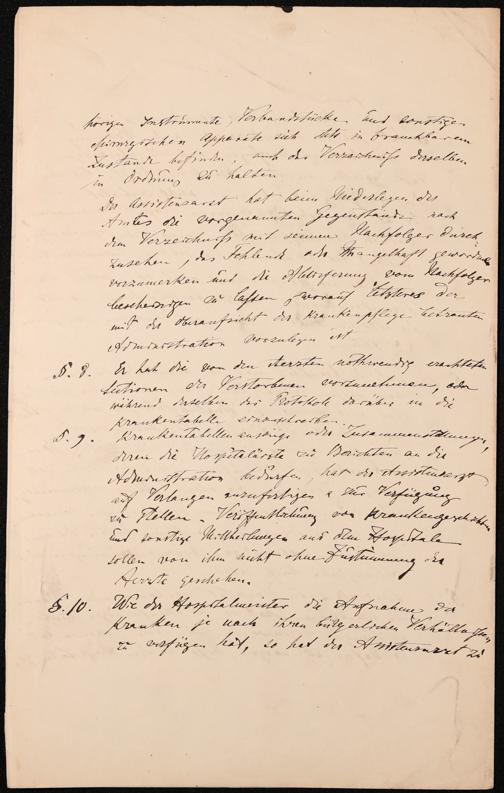 hörigen Instrumente, Verbandstücke und sonstigen
chirurgischen Apparate sich stets in brauchbarem
Zustande befinden, auch das Verzeichniß derselben
in Ordnung zu halten
Der Assistenzarzt hat beim Niederlegen des
Amtes die vorgenannten Gegenstände nach
dem Verzeichniß mit seinem Nachfolger durch
zusehen, das Fehlende oder Mangelhaft gewordene
vorzumerken und die Ablieferung vom Nachfolger
bescheinigen zu lassen, worauf letzteres der
mit der Oberaufsicht der Krankenpflege betrauten
Administration vorzulegen ist
§. 8. Er hat die von den Aerzten nothwendig erachteten
Sectionen der Verstorbenen vorzunehmen, oder
während derselben das Protokoll darüber in die
Krankentabelle einzuschreiben.
§. 9. Krankentabellenauszüge oder Zusammenstellungen,
deren die Hospitalärzte zu Berichten an die
Administration bedürfen, hat der Assistenzarzt
auf Verlangen anzufertigen u zur Verfügung
zu stellen. Veröffentlichung von Krankengeschichten
und sonstige Mittheilungen aus dem Hospitale
sollen von ihm nicht ohne Zustimmung der
Aerzte geschehen.
§. 10. Wie der Hospitalmeister die Aufnahme der
Kranken je nach ihren bürgerlichen Verhältnissen
zu verfügen hat, so hat der Assistenzarzt zu